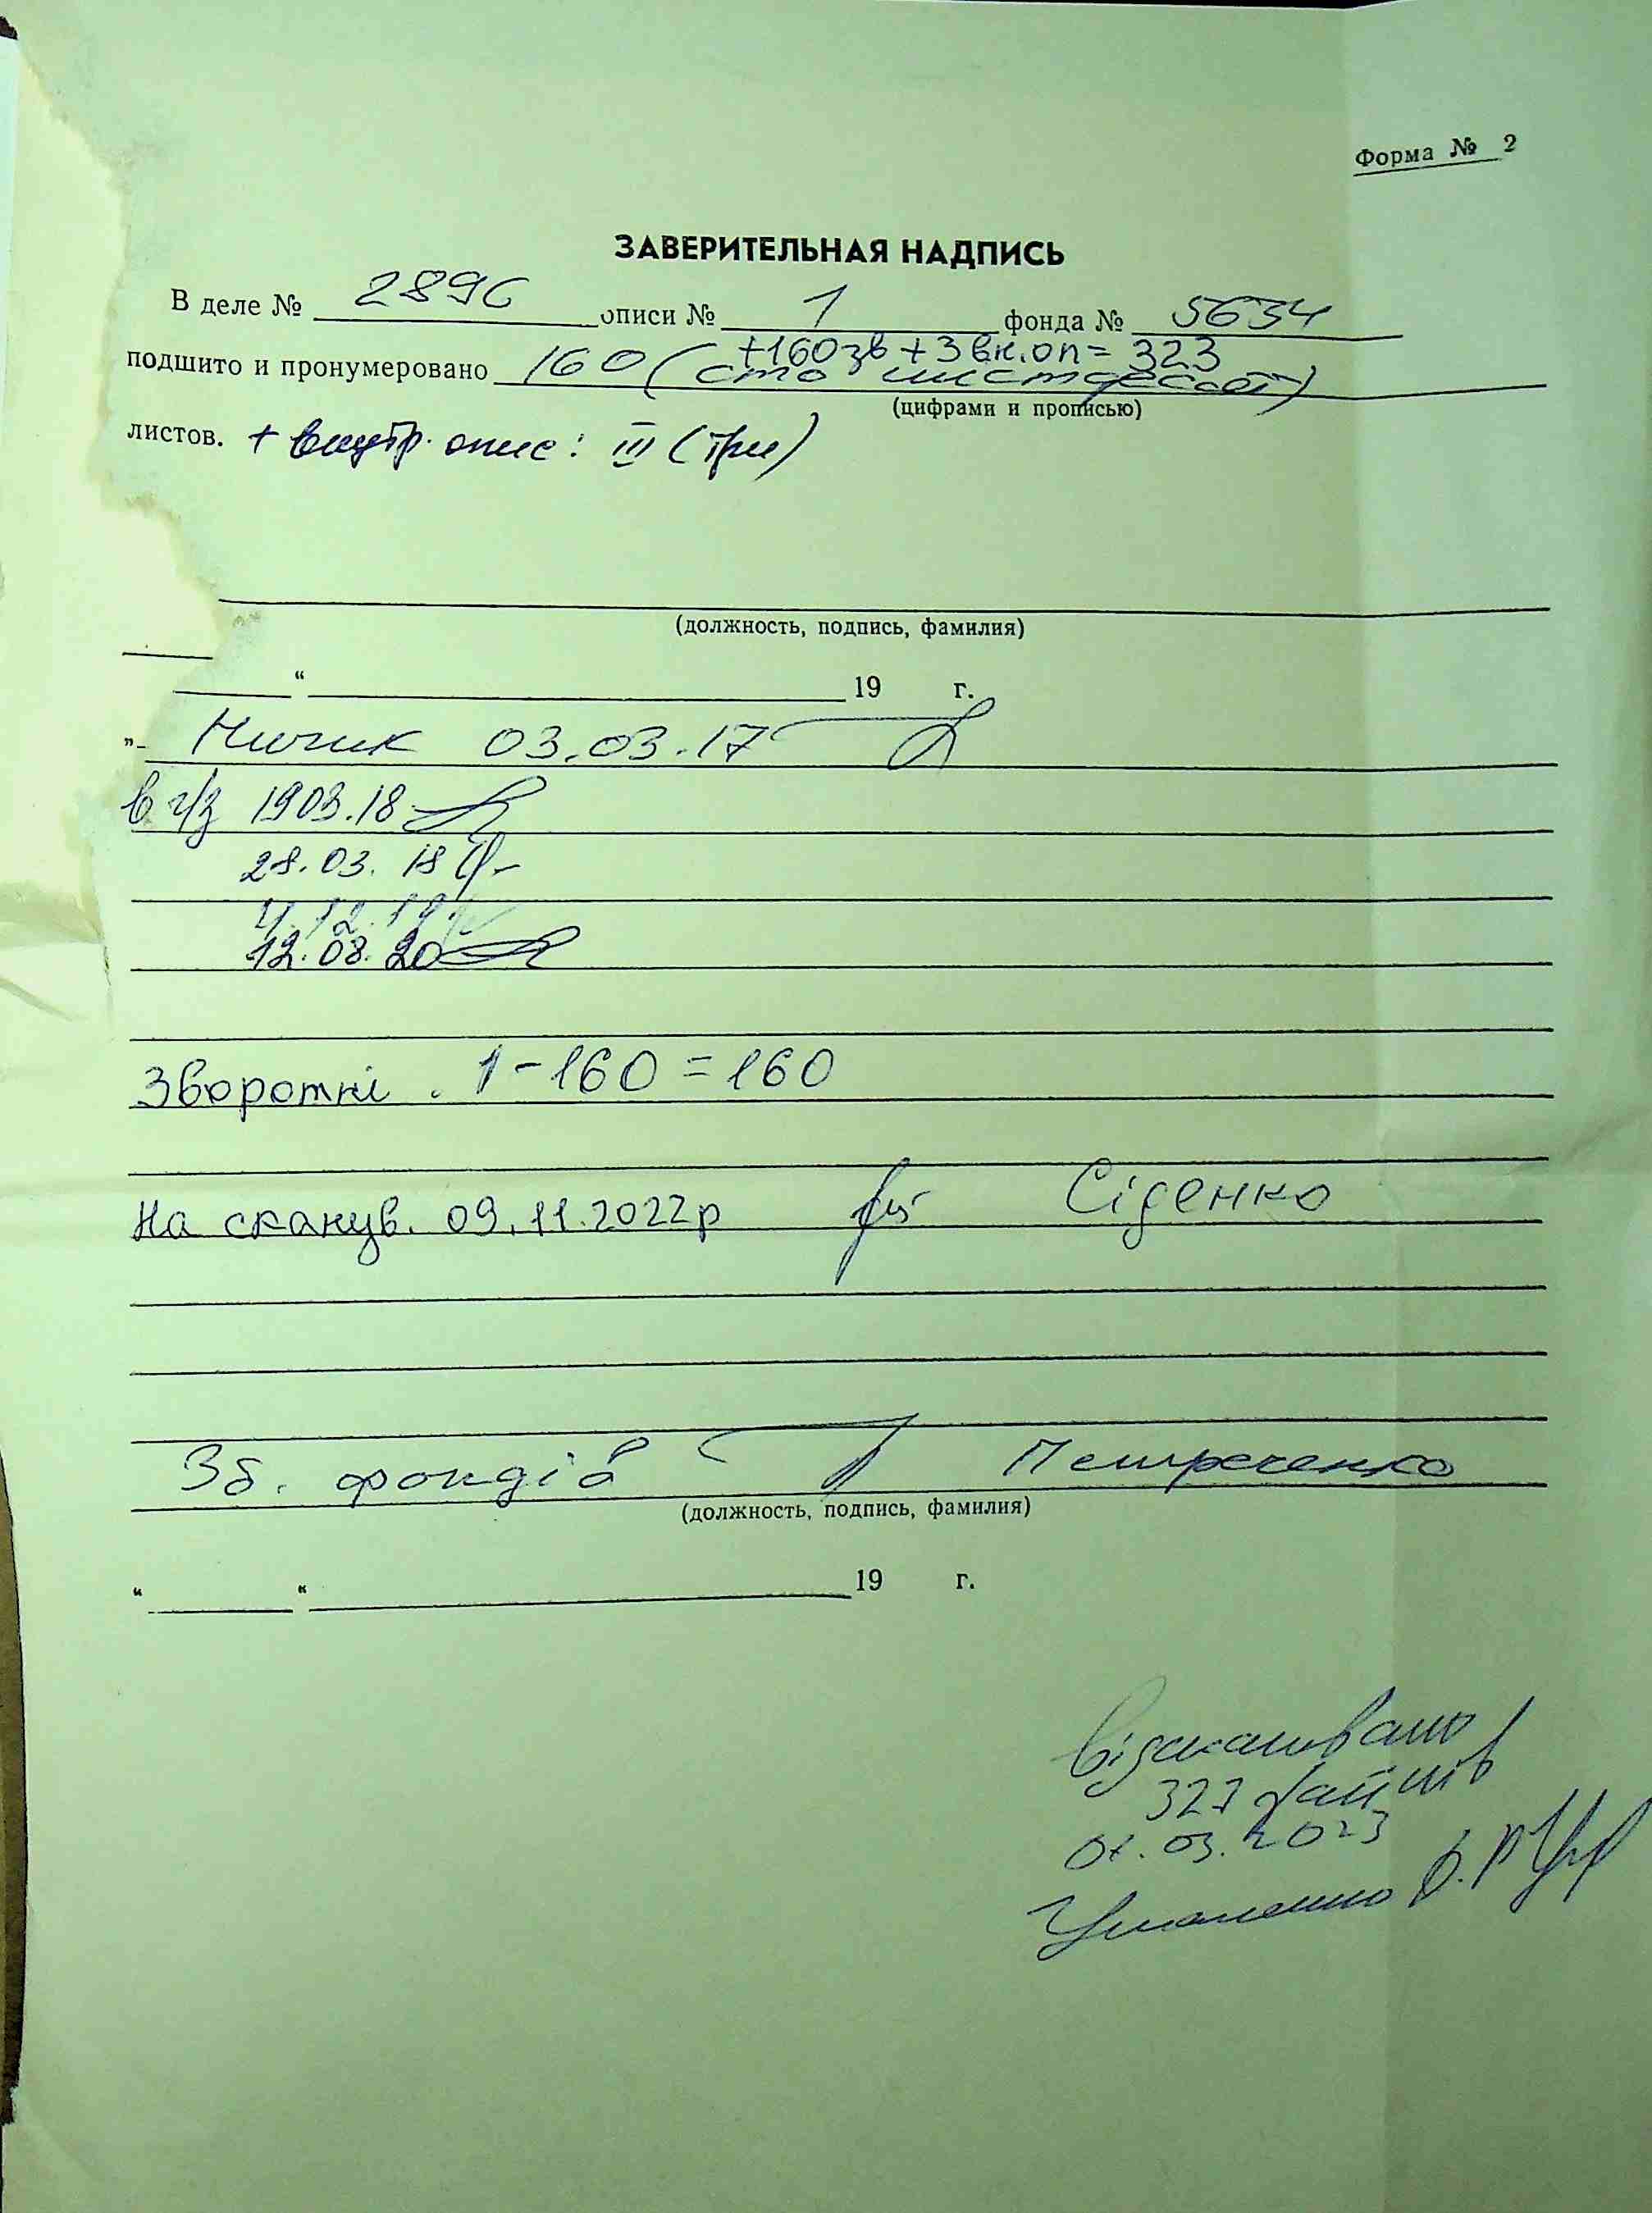 Форма № 2
ЗАВЕРИТЕЛЬНАЯ НАДПИСЬ
В деле № 2896 описи № 1 фонда № 5634
+160 зв + 3 вн. оп = 323
подшито и пронумеровано 160 (сто шистдесят)
(цифрами и прописью)
листов. + внутр. опис: III (три)
(должность, подпись, фамилия)
“ 19 г.
„ 03.03.17
в ч/з 19 03.18
28.03.18
12.08.20
Зворотні . 1-160=160
На сканув. 09.11.2022р Сіденко
Зб. фондів Петреченко
(должность, подпись, фамилия)
“ “ 19 г.
Відскановано
323 файлів
01.03.2023